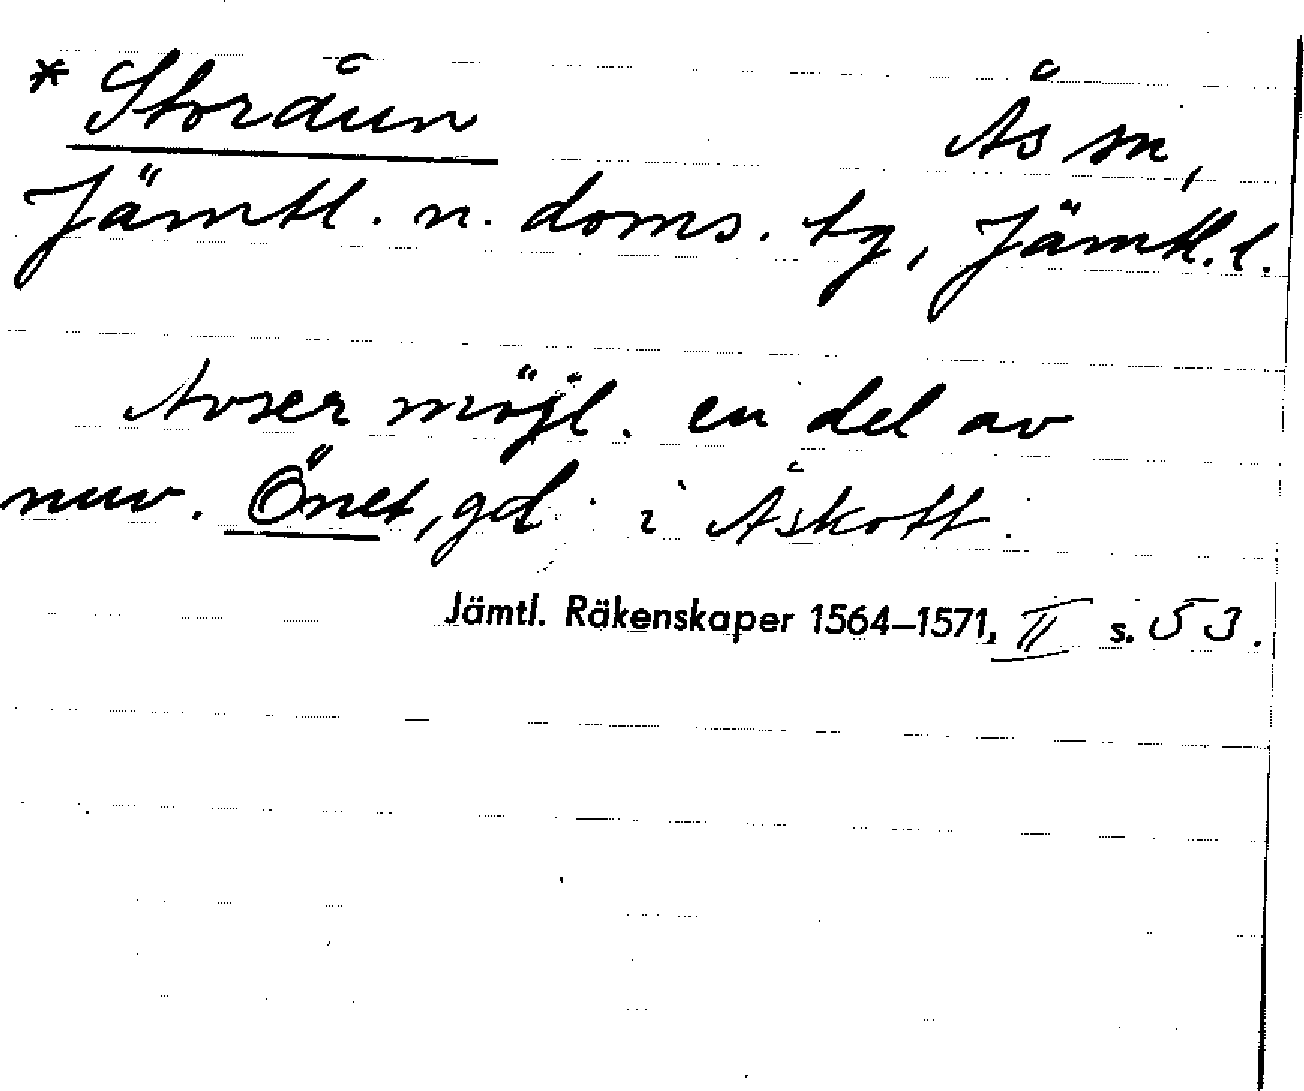 * Storåun Ås sn,
Jämtl. n. doms. tg, Jämtl. l.
Avser möjl. en del av
nuv. Önet, gd i Åskott.
Jämtl. Räkenskaper 1564–1571, II s. 53.